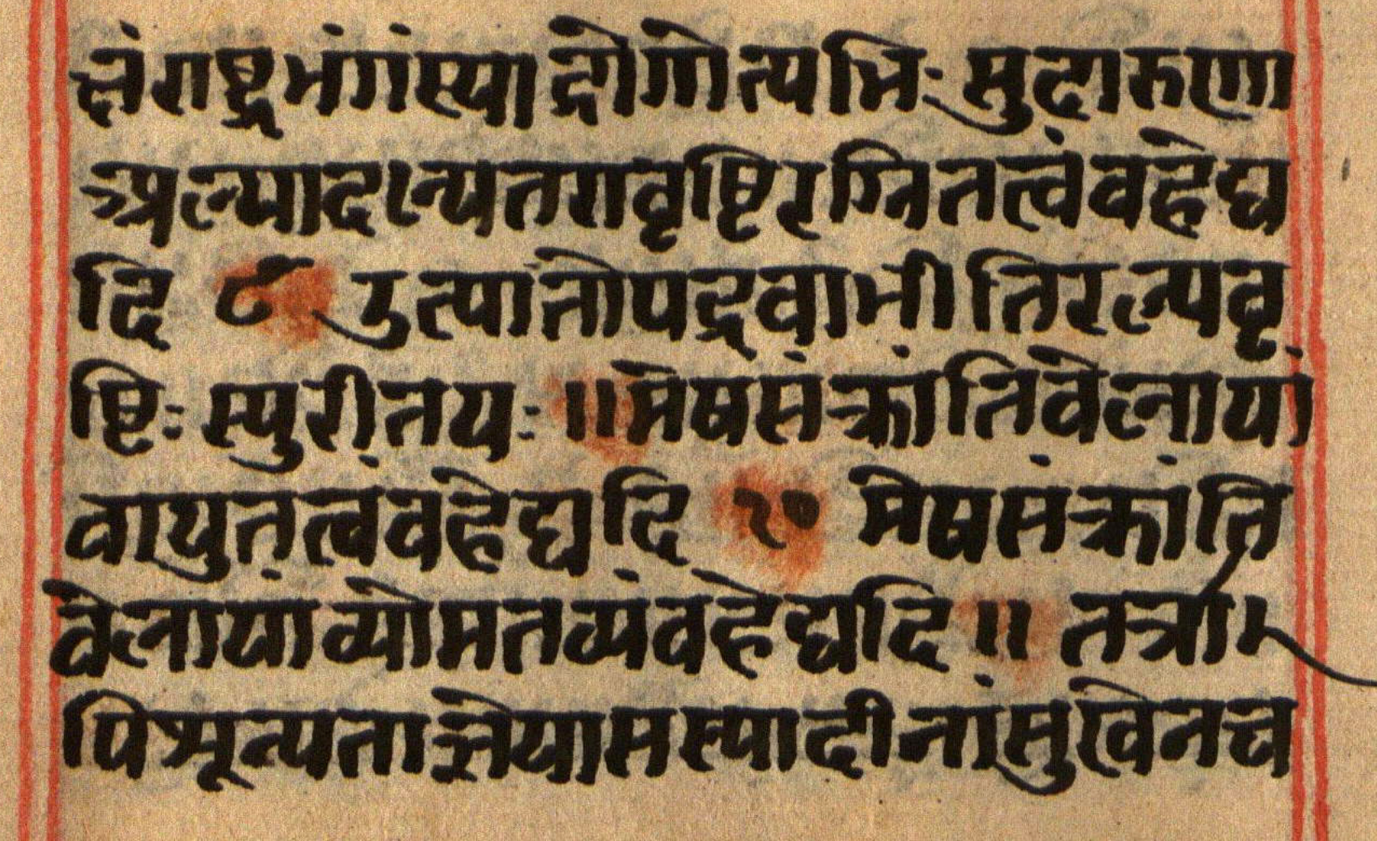 क्षं राष्ट्रभंगंस्याद्रोगोत्पत्तिः सुदारुणा
अल्पादल्पतरावृष्टिरग्नितत्वंवहेद्य
दि ९ उत्पातोपद्रवाभीतिरल्पवृ
ष्टिः स्युरीतयः ॥ मेषसंक्रांतिवेलायां
वायुतत्वंवहेद्यदि १० मेषसंक्रांति
वेलायांव्योमतत्वंवहेद्यदि ॥ तत्रा
पिशून्यताज्ञेयासस्यादीनांसुखेनच